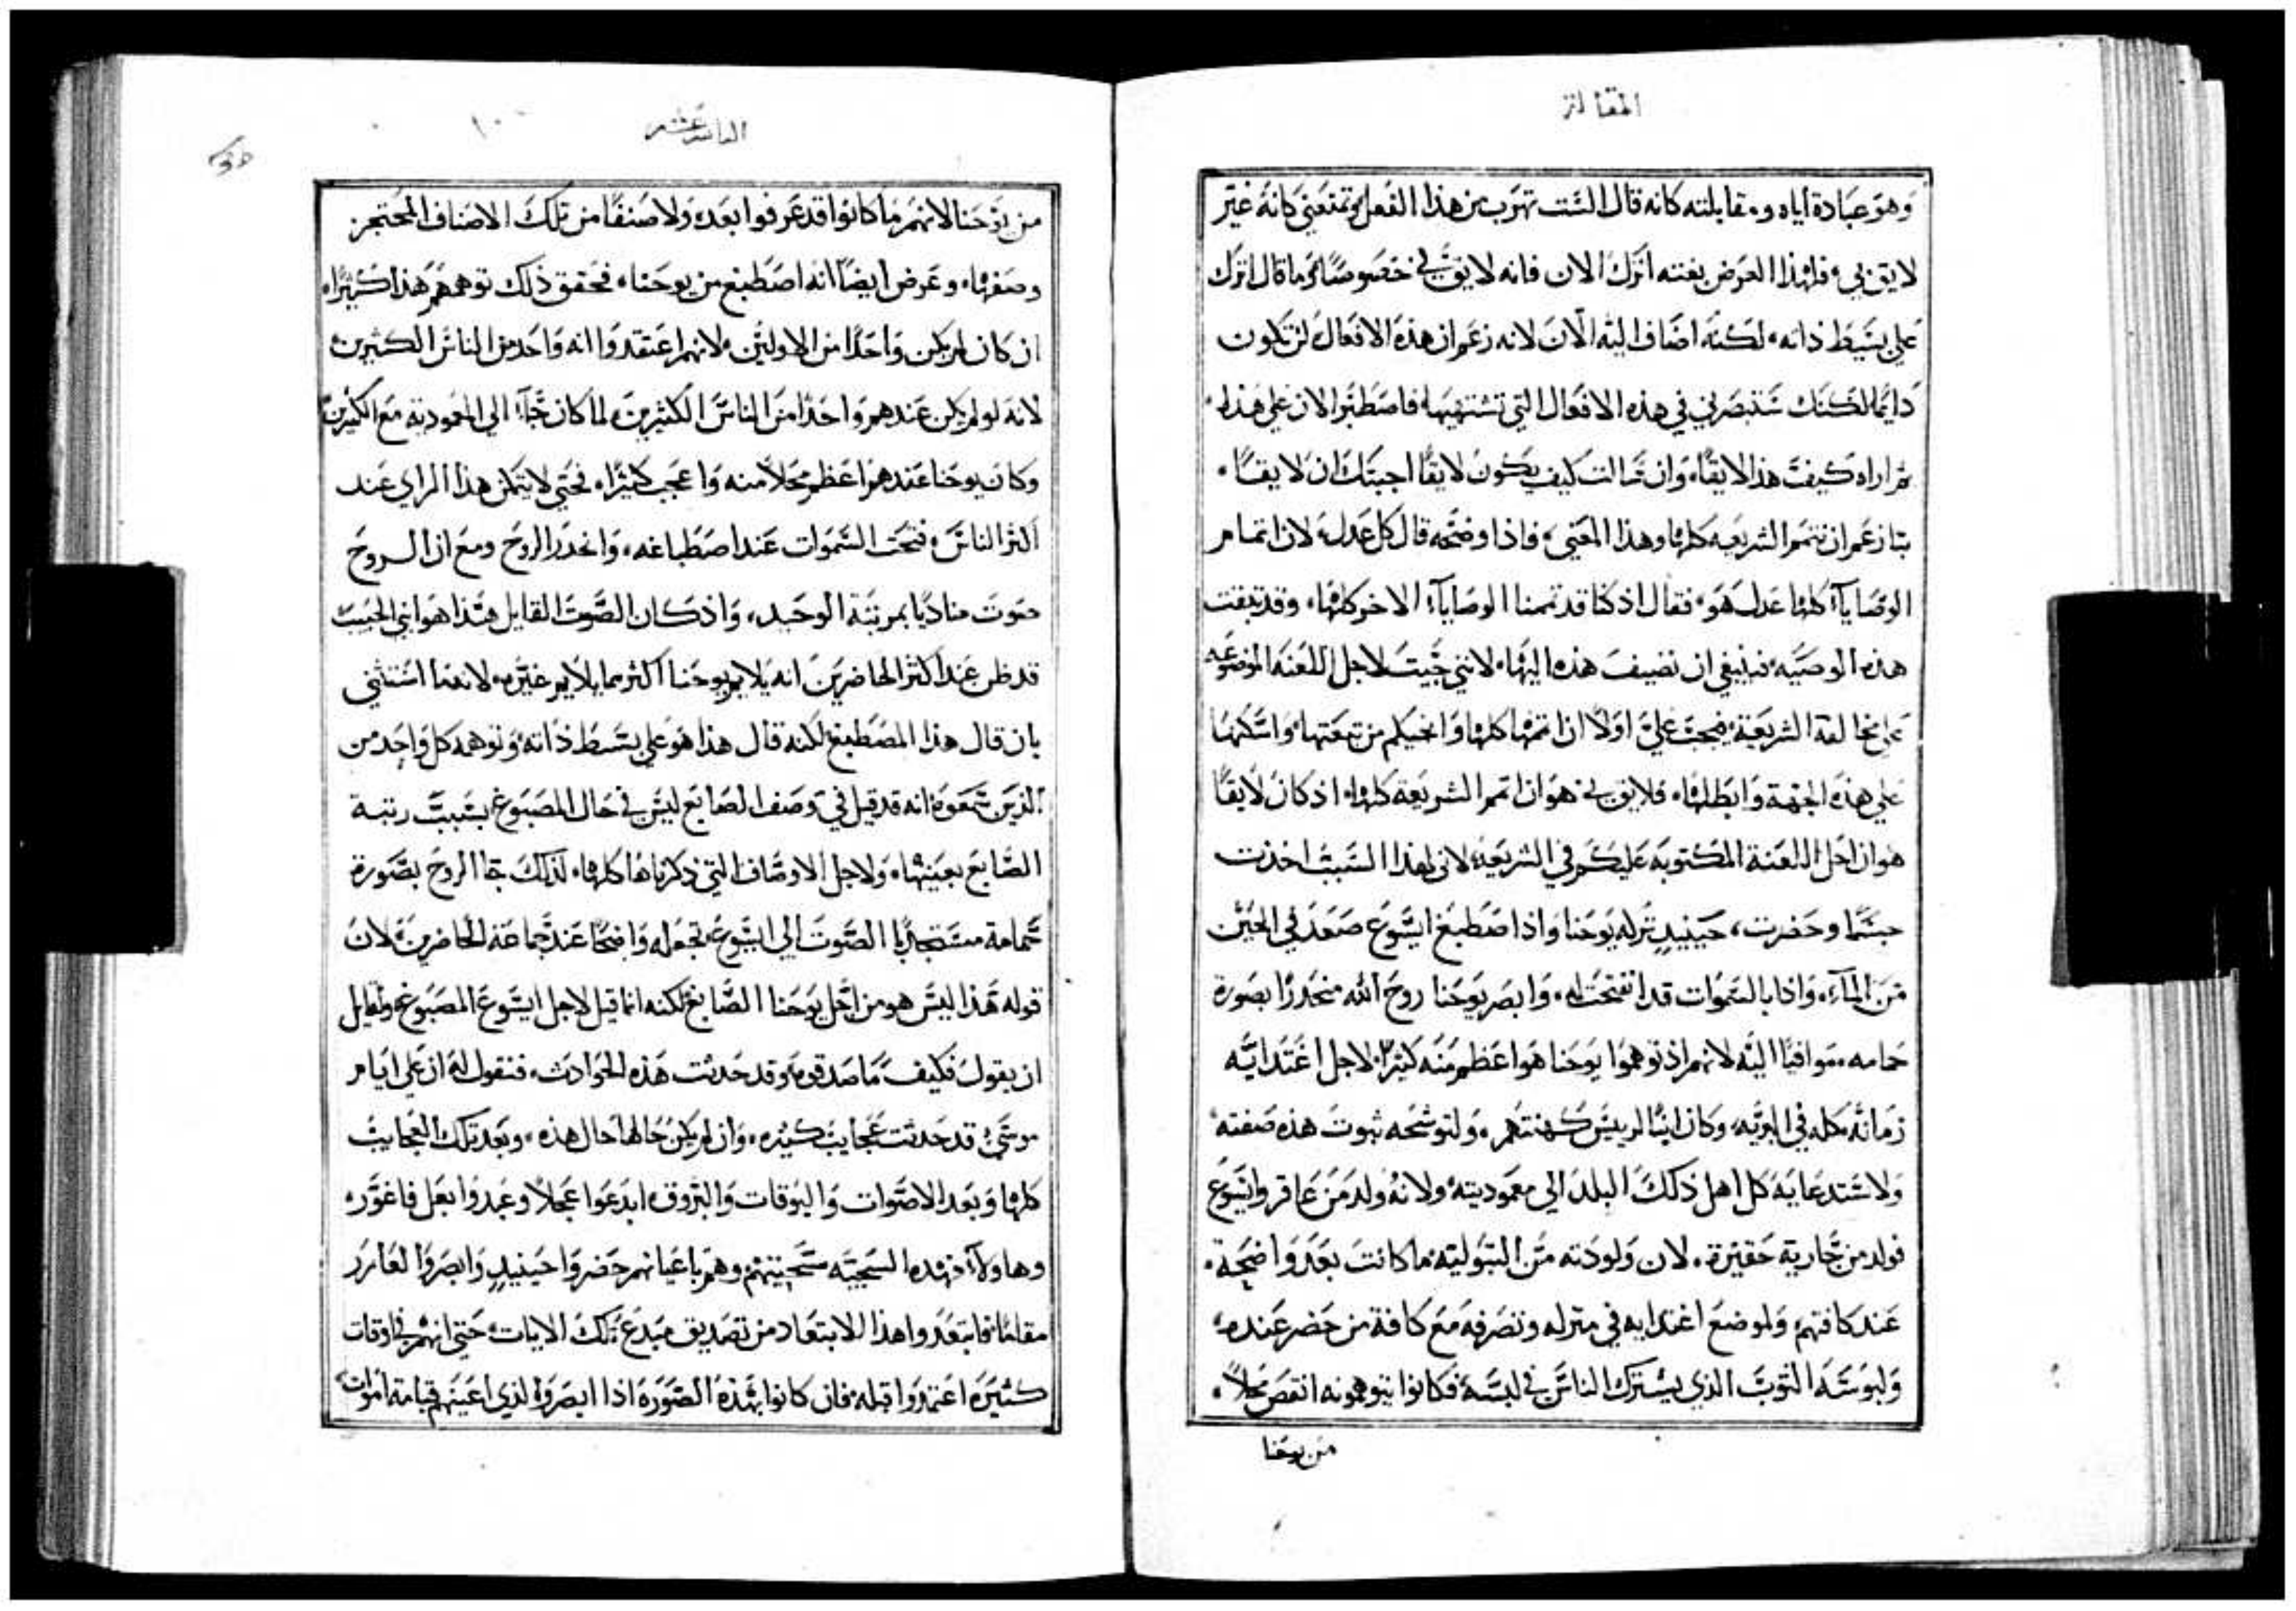 المقالة
وهو عبادة اياه ومقابلته كانه قال الست تهرب من هذا الفعل وتمتعني كانه غير
لايق بي فلهذا الغرض بعينه اترك الان فانه لايق بي خصوصا وما قال اترك
علي بسيط ذاته لكنه اضاف اليه الان لانه زعم ان هذه الافعال لن تكون
دايما لكنك ستبصرني في هذه الافعال التي تشتهيها فاصطبر الان علي هذا
ثم اراه كيف هذا لايقا وان سالت كيف يكون لايقا اجبتك ان لايقا
بنا زعم ان نتمم الشريعه كلها وهذا المعني فاذا وضحه قال كل عدل لان اتمام
الوصايا كلها عدل هو فقال اذ كنا قد تممنا الوصايا الاخر كلها وقد تبقت
هذه الوصيه فينبغي ان نضيف هذه اليها لانني جيت لاجل اللعنه الموضوعه
علي مخالفة الشريعة فيجب علي اولا ان اتمها كلها وانجيكم من تبعتها واسكنها
علي هذه الجهة وابطلها فلايق بي هو ان اتمم الشريعة كلها اذ كان لايقا
هو ان احل اللعنة المكتوبه عليكم في الشريعة لاني لهذا السبب اخذت
جسما وحضرت حينيد ترله يوحنا واذا صطبغ ايسوع صعد في الحين
من الماء واذا بالسموات قد انفتحت له وابصر يوحنا روح الله منحدرا بصورة
حمامه موافيا اليه لانهم اذ توهموا يوحنا هو اعظم منه كثيرا لاجل اغتدايه
زمانه كله في البريه وكان ابنا لرييس كهنتهم ولتوشحه ثبوت هذه صفته
ولاستدعايه كل اهل ذلك البلد الي معموديته ولانه ولد من عاقر وايسوع
فولد من جارية حقيرة لان ولودته من البتوليه ما كانت بعد واضحة
عند كافتهم ولموضع اغتدايه في منزله وتصرفه مع كافة من حضر عنده
ولبوسه الثوب الذي يشترك الناس في لبسه فكانوا يتوهمونه انقص محلا
من يوحنا
العاشر عشر
١٠٠
من يوحنا لانهم ما كانوا قد عرفوا بعد ولا صنفا من تلك الاصناف المحتجز
وصفها وعرض ايضا انه اصطبغ من يوحنا فحقق ذلك توهمهم هذا كثيرا
ان كان لم يكن واحدا من الاولين لانهم اعتقدوا انه واحد من الناس الكثيرين
لانه لو لم يكن عندهم واحدا من الناس الكثيرين لما كان جاء الي المعمودية مع الكثيرين
وكان يوحنا عندهم اعظم محلا منه واعجب كثيرا فحتي لا يتمكن هذا الراي عند
اكثر الناس فتحت السموات عند اصطباغه وانحدر الروح ومع ان الروح
صوت مناديا بمرتبة الوحيد واذ كان الصوت القايل هذا هو ابني الحبيب
قد ظن عند اكثر الحاضرين انه يلايم يوحنا اكثر مما يلايم غيره لانه ما استثني
بان قال هذا المصطبغ لكنه قال هذا هو علي بسيط ذاته وتوهمه كل واحد من
الذين سمعوه انه قد قيل في وصف الصابغ ليس في حال المصبوغ بسبب رتبة
الصابغ بعينها ولاجل الاوصاف التي ذكرناها كلها لذلك جا الروح بصورة
حمامة مستجذبا الصوت الي ايسوع تجعله واضحا عند جماعة الحاضرين لان
قوله هذا ليس هو من اجل يوحنا الصابغ لكنه انما قيل لاجل ايسوع المصبوغ ولقايل
ان يقول فكيف ما صدقوه وقد حدثت هذه الحوادث فنقول له ان علي ايام
موسي قد حدثت عجايب كثيره وان لم يكن حالها حال هذه وبعد تلك العجايب
كلها وبعد الاصوات والبوقات والبروق ابدعوا عجلا وعبدوا بعل فاغور
وهاولاء فهذه السجيه سجيتهم وهم باعيانهم حضروا حينيد وابصروا لعازر
مقاما فابتعدوا هذا الابتعاد من تصديق مبدع تلك الايات حتي انهم في اوقات
كثيره اعتمدوا قتله فان كانوا بهذه الصوره اذا ابصروا لذي اعينهم قيامة اموات